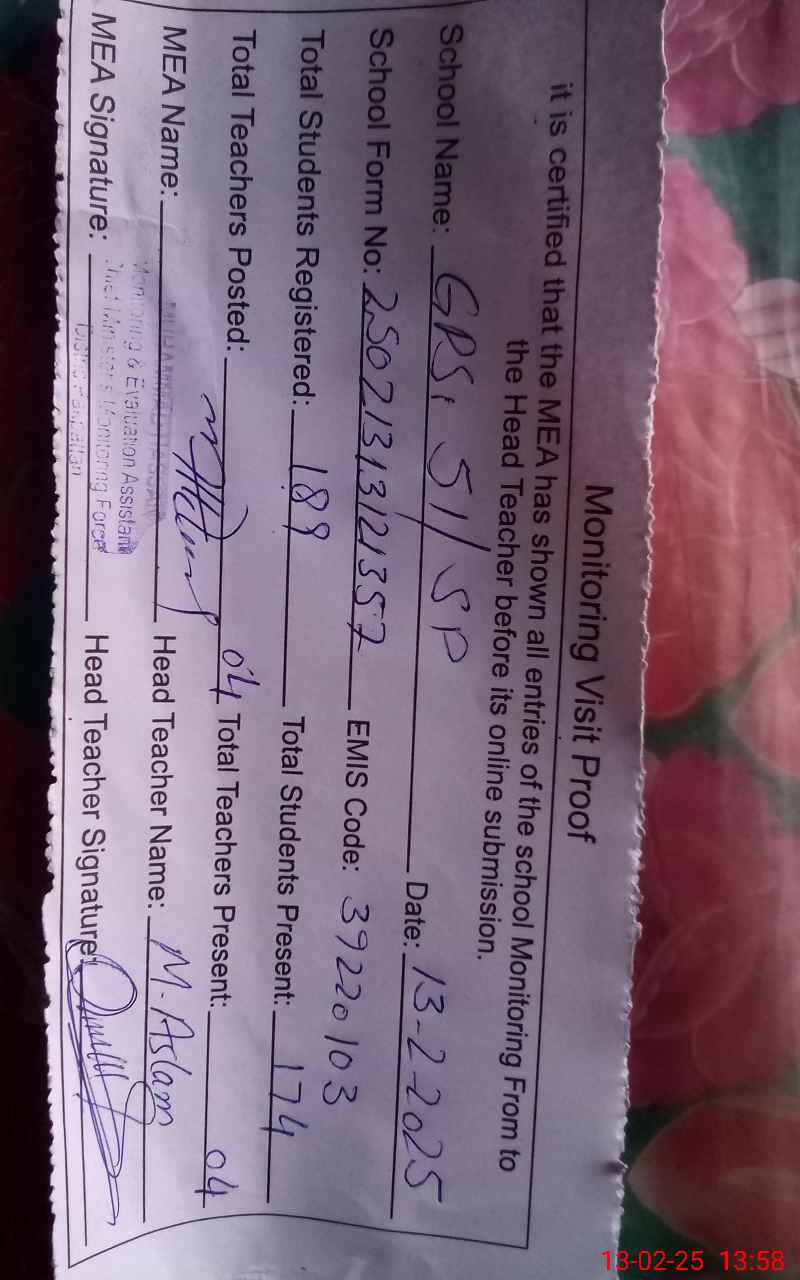 Monitoring Visit Proof
it is certified that the MEA has shown all entries of the school Monitoring From to
the Head Teacher before its online submission.
School Name: GPS, 51/SP Date: 13-2-2025
School Form No: 25021313121357 EMIS Code: 39220103
Total Students Registered: 189 Total Students Present: 174
Total Teachers Posted: 04 Total Teachers Present: 04
MEA Name: Head Teacher Name: M. Aslam
Monitoring & Evaluation Assistant
Chief Minister's Monitoring Force
District Pakpattan
MEA Signature: Head Teacher Signature:
13-02-25 13:58